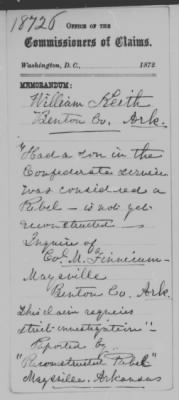 18726
OFFICE OF THE
Commissioners of Claims.
Washington, D. C., 1872
MEMORANDUM:
William Keith
Benton Co, Ark.
"Had a son in the
Confederate service
was considered a
Rebel – is not yet
reconstructed –
Inquire of
Co. M. Finnicum –
Maysville
Benton Co. Ark.
This claim requires
strict investigation" –
Reported by
"Reconstructed Rebel"
Maysville, Arkansas